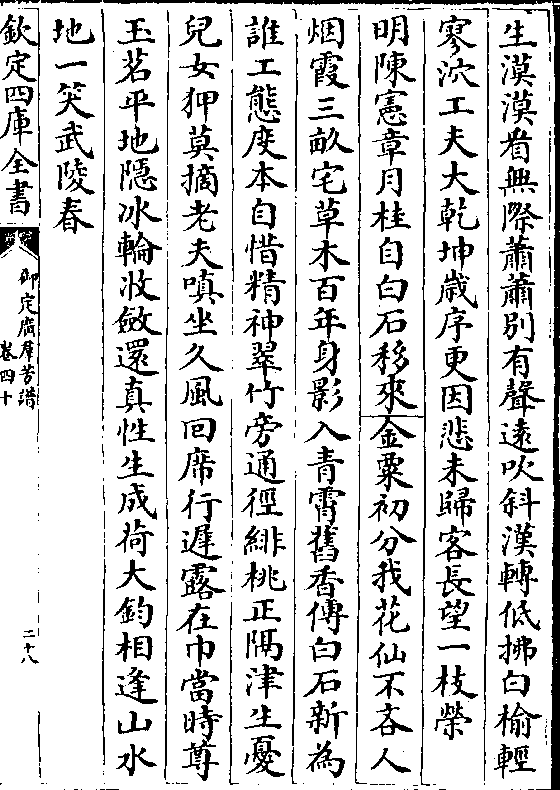 生漠漠看無際蕭蕭别有聲逺吹斜漢轉低拂白榆輕
寥泬工夫大乾坤嵗序更因悲未歸客長望一枝榮
明陳憲章月桂自白石移來金粟初分我花仙不吝人
烟霞三畝宅草木百年身影入青霄舊香傳白石新為
誰工態度本自惜精神翠竹旁通徑緋桃正隔津生憂
兒女狎莫摘老夫嗔坐久風回席行遲露在巾當時尊
玉茗平地隱冰輪收斂還真性生成荷大鈞相逢山水
地一笑武陵春
欽定四庫全書
御定廣羣芳譜
卷四十
二十八